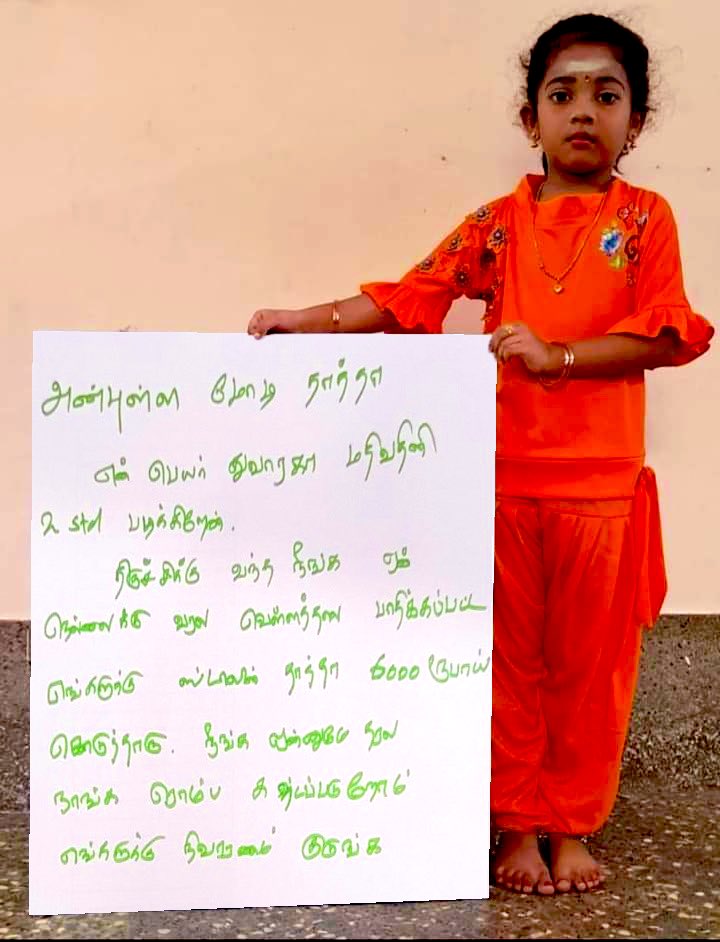 அன்புள்ள மோடி தாத்தா
என் பெயர் துவாரகா மதிவதினி
2 std படிக்கிறேன்.
திருச்சிக்கு வந்த நீங்க ஏன்
நெல்லைக்கு வரல வெள்ளத்தால பாதிக்கப்பட்ட
எங்களுக்கு ஸ்டாலின் தாத்தா 6000 ரூபாய்
கொடுத்தாரு. நீங்க ஒன்னுமே தரல
நாங்க ரொம்ப கஷ்டப்படுறோம்
எங்களுக்கு நிவாரணம் குடுங்க